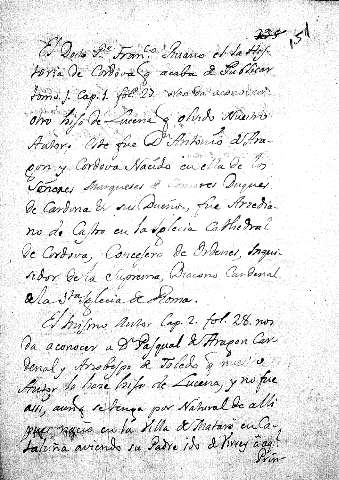 151
El Doctr. Dn. Franco. Ruano en la His-
toria de Cordova q acaba de Publicar
tom. 1. Cap. 1. fol. 27. nos da a conocer
otro hijo de Lucena q olvido Nuestro
Autor. Este fue Dn. Antonio de Ara-
gon y Cordova Nacido en ella de los
Señores Marqueses de Comares Duques
de Cardona & sus Dueños, fue Arcedia
no de Castro en la Iglesia Cathedral
de Cordova, Consejero de Ordenes, Inqui
sidor de la Suprema, Diacono Cardenal
de la Sta. Iglesia de Roma.
El mismo Autor Cap. 2. fol. 28. nos
da a conocer a Dn. Pasqual de Aragon Car-
denal y Arzobispo de Toledo q nuestro
Autor lo hace hijo de Lucena, y no fue
assi, aunq se tenga por Natural de alli
pues nacio en la Villa de Mataro en Ca-
taluña aviendo su Padre ido de Virrey a aql
Prin-